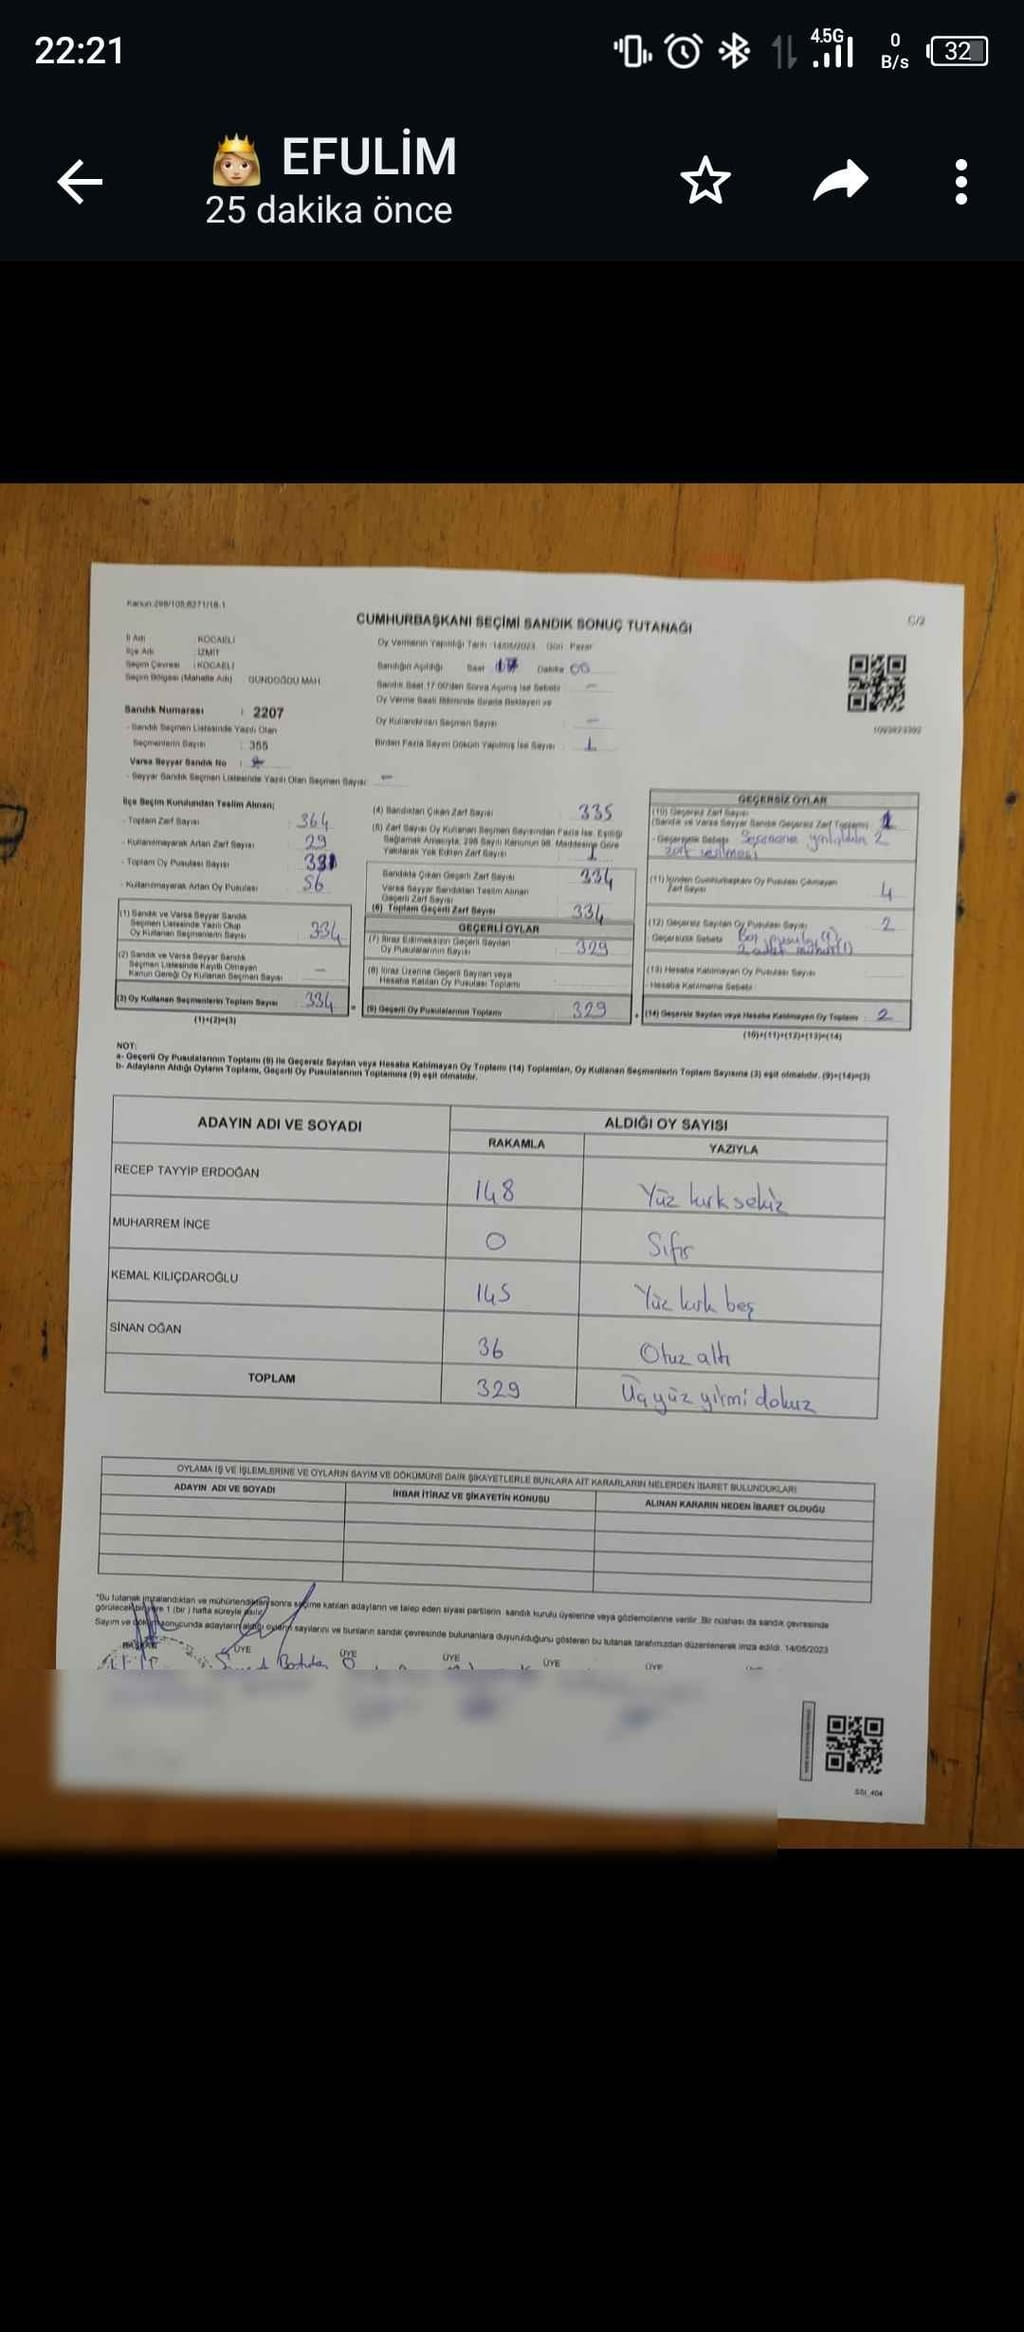 22:21
4.5G
0
B/s
32
EFULİM
25 dakika önce
Kanun:298/105,6271/18-1
CUMHURBAŞKANI SEÇİMİ SANDIK SONUÇ TUTANAĞI
C/2
İl Adı : KOCAELİ
İlçe Adı : İZMİT
Seçim Çevresi : KOCAELİ
Seçim Bölgesi (Mahalle Adı) GÜNDOĞDU MAH.
Oy Vermenin Yapıldığı Tarih :14/05/2023 Gün: Pazar
Sandığın Açıldığı Saat 17 Dakika 00
Sandık Saat 17.00'den Sonra Açılmış İse Sebebi –
Oy Verme Saati Bitiminde Sırada Bekleyen ve
Oy Kullandırılan Seçmen Sayısı –
Birden Fazla Sayım Döküm Yapılmış İse Sayısı 1
Sandık Numarası : 2207
- Sandık Seçmen Listesinde Yazılı Olan
Seçmenlerin Sayısı : 355
Varsa Seyyar Sandık No :
- Seyyar Sandık Seçmen Listesinde Yazılı Olan Seçmen Sayısı: –
İlçe Seçim Kurulundan Teslim Alınan;
- Toplam Zarf Sayısı 364
- Kullanılmayarak Artan Zarf Sayısı 29
- Toplam Oy Pusulası Sayısı
- Kullanılmayarak Artan Oy Pusulası 56
(1) Sandık ve Varsa Seyyar Sandık
Seçmen Listesinde Yazılı Olup
Oy Kullanan Seçmenlerin Sayısı 334
(2) Sandık ve Varsa Seyyar Sandık
Seçmen Listesinde Kayıtlı Olmayan
Kanun Gereği Oy Kullanan Seçmen Sayısı –
(3) Oy Kullanan Seçmenlerin Toplam Sayısı 334
(1)+(2)=(3)
(4) Sandıktan Çıkan Zarf Sayısı 335
(5) Zarf Sayısı Oy Kullanan Seçmen Sayısından Fazla İse, Eşitliği
Sağlamak Amacıyla, 298 Sayılı Kanunun 98. Maddesine Göre
Yakılarak Yok Edilen Zarf Sayısı 1
Sandıkta Çıkan Geçerli Zarf Sayısı 334
Varsa Seyyar Sandıktan Teslim Alınan
Geçerli Zarf Sayısı
(6) Toplam Geçerli Zarf Sayısı 334
GEÇERLİ OYLAR
(7) İtiraz Edilmeksizin Geçerli Sayılan
Oy Pusulalarının Sayısı 329
(8) İtiraz Üzerine Geçerli Sayılan veya
Hesaba Katılan Oy Pusulası Toplamı
(9) Geçerli Oy Pusulalarının Toplamı 329
GEÇERSİZ OYLAR
(10) Geçersiz Zarf Sayısı
(Sandık ve Varsa Seyyar Sandık Geçersiz Zarf Toplamı) 1
- Geçersizlik Sebebi Seçmene yanlışlıkla 2
zarf verilmesi
(11) İçinden Cumhurbaşkanı Oy Pusulası Çıkmayan
Zarf Sayısı 4
(12) Geçersiz Sayılan Oy Pusulası Sayısı 2
- Geçersizlik Sebebi Boş pusula(1)
2 adet mühür(1)
(13) Hesaba Katılmayan Oy Pusulası Sayısı
- Hesaba Katılmama Sebebi
(14) Geçersiz Sayılan veya Hesaba Katılmayan Oy Toplamı 2
(10)+(11)+(12)+(13)=(14)
NOT:
a- Geçerli Oy Pusulalarının Toplamı (9) ile Geçersiz Sayılan veya Hesaba Katılmayan Oy Toplamı (14) Toplamları, Oy Kullanan Seçmenlerin Toplam Sayısına (3) eşit olmalıdır. (9)+(14)=(3)
b- Adayların Aldığı Oyların Toplamı, Geçerli Oy Pusulalarının Toplamına (9) eşit olmalıdır.
ADAYIN ADI VE SOYADI
ALDIĞI OY SAYISI
RAKAMLA
YAZIYLA
RECEP TAYYİP ERDOĞAN 148 Yüz kırk sekiz
MUHARREM İNCE 0 Sıfır
KEMAL KILIÇDAROĞLU 145 Yüz kırk beş
SİNAN OĞAN 36 Otuz altı
TOPLAM 329 Üçyüz yirmi dokuz
OYLAMA İŞ VE İŞLEMLERİNE VE OYLARIN SAYIM VE DÖKÜMÜNE DAİR ŞİKAYETLERLE BUNLARA AİT KARARLARIN NELERDEN İBARET BULUNDUKLARI
ADAYIN ADI VE SOYADI
İHBAR İTİRAZ VE ŞİKAYETİN KONUSU
ALINAN KARARIN NEDEN İBARET OLDUĞU
*Bu tutanak imzalandıktan ve mühürlendikten sonra seçime katılan adayların ve talep eden siyasi partilerin sandık kurulu üyelerine veya gözlemcilerine verilir. Bir nüshası da sandık çevresinde
görülecek bir yere 1 (bir) hafta süreyle asılır.
Sayım ve döküm sonucunda adayların aldığı oyların sayılarını ve bunların sandık çevresinde bulunanlara duyurulduğunu gösteren bu tutanak tarafımızdan düzenlenerek imza edildi. 14/05/2023
BAŞKAN
ÜYE
ÜYE
ÜYE
ÜYE
ÜYE